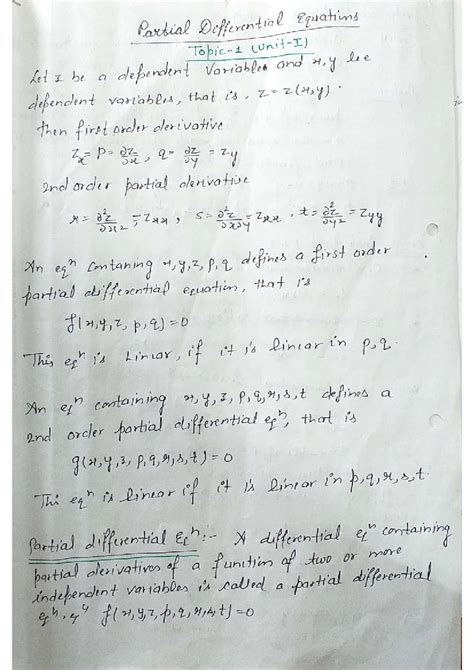 Partial Differential Equations
Topic-1 (Unit-I)
Let z be a dependent variables and x, y be
dependent variables, that is, z = z(x,y).
Then first order derivative
Zx = P = ∂z/∂x, q = ∂z/∂y = Zy
2nd order partial derivative
r = ∂²z/∂x² = Zxx, s = ∂²z/∂x∂y = Zxx, t = ∂²z/∂y² = Zyy
An eqⁿ contaning x, y, z, p, q defines a first order
partial differential equation, that is
f(x,y,z,p,q)=0
This eqⁿ is Linear, if it is linear in p,q.
An eqⁿ containing x, y, z, p, q, r, s, t defines a
2nd order partial differential eqⁿ, that is
g(x,y,z,p,q,r,s,t)=0
This eqⁿ is linear if it is linear in p,q,r,s,t.
Partial differential Eqⁿ:- A differential eqⁿ containing
partial derivatives of a function of two or more
independent variables is called a partial differential
eqⁿ. f(x,y,z,p,q,r,s,t)=0